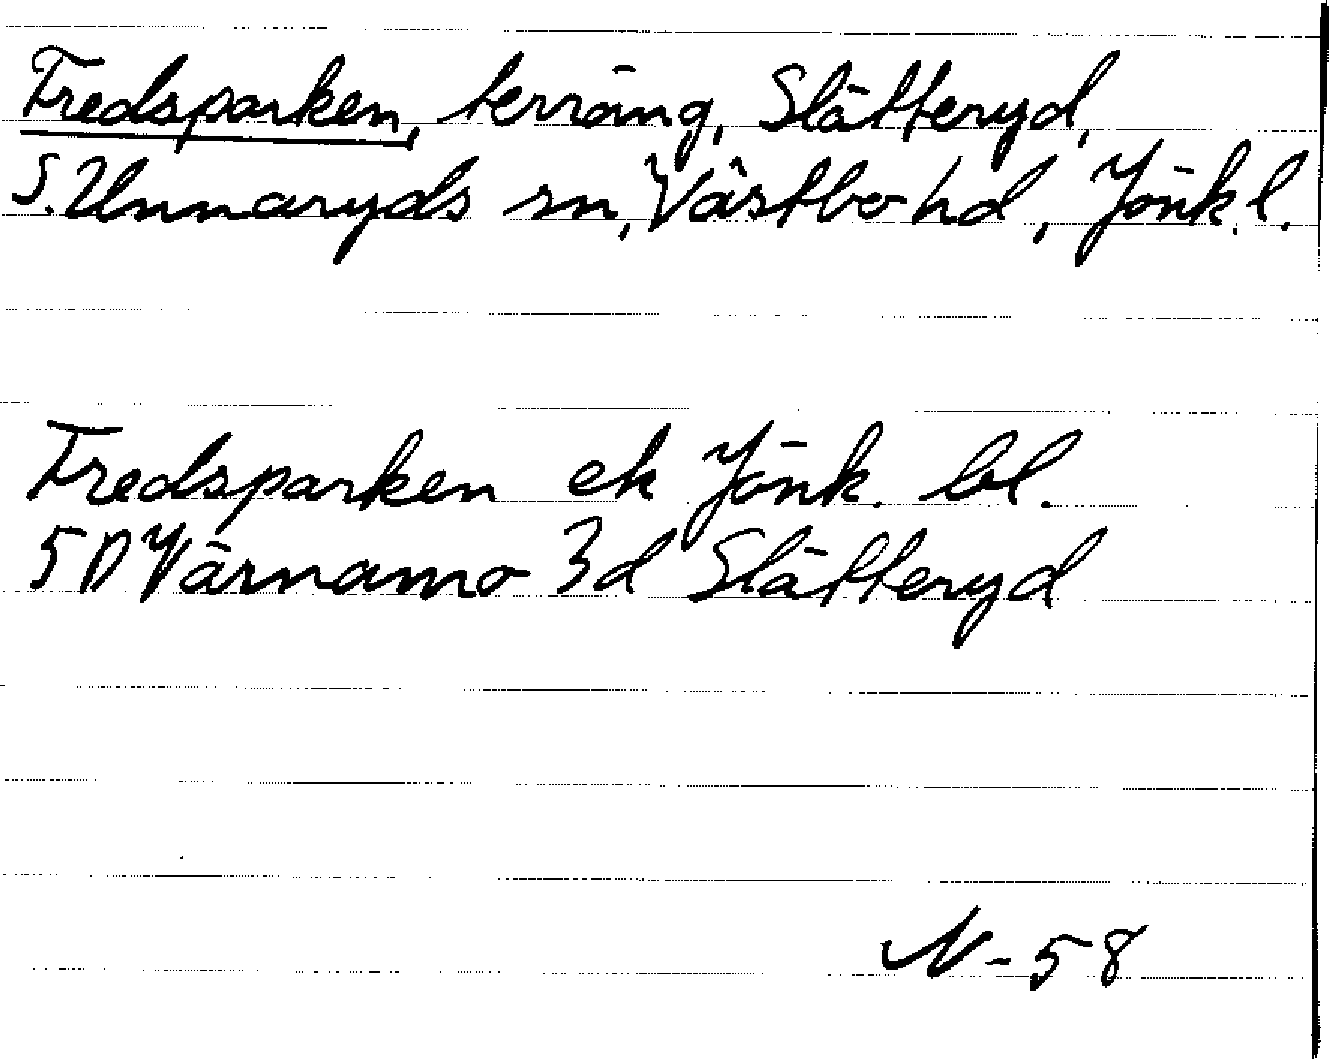 Fredsparken, terräng, Slätteryd,
S. Unnaryds sn, Västbo hd, Jönk. l.
Fredsparken ek Jönk. bl.
5 D Värnamo 3d Slätteryd
N-58